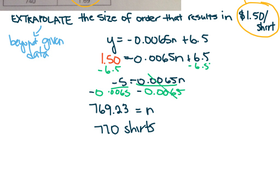 EXTRAPOLATE the size of order that results in $1.50/
shirt
beyond given
data
y = -0.0065n + 6.5
1.50 = -0.0065n + 6.5
-6.5 -6.5
-5 = -0.0065n
-0.0065 -0.0065
769.23 = n
770 shirts